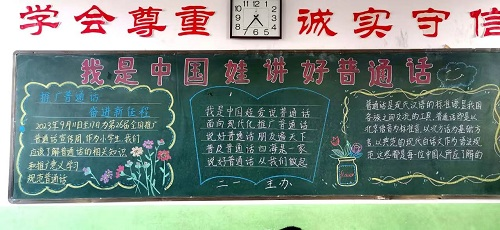 学会尊重
诚实守信
我是中国娃 讲好普通话
推广普通话
奋进新征程
2023年9月11日至17日为第26届全国推广
普通话宣传周，作为小学生，我们
应该了解普通话的相关知识
和推广意义，学习
规范普通话
我是中国娃爱说普通话
面向现代化推广普通话
说好普通话朋友遍天下
普及普通话四海是一家
说好普通话从我们做起
二一 主办
普通话是现代汉语的标准语是我国
各族之间交流的工具，普通话即是以
北京语音为标准音，以北方话为基础方
言，以典范的现代白话文作为语法规
范，这些都是每一位中国人所应了解的